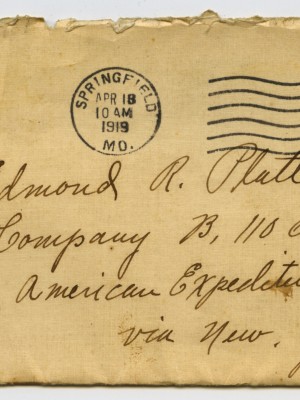 SPRINGFIELD
APR 18
10 AM
1919
MO.
Edmond R. Platt
Company B, 110
American Expeditio
via New